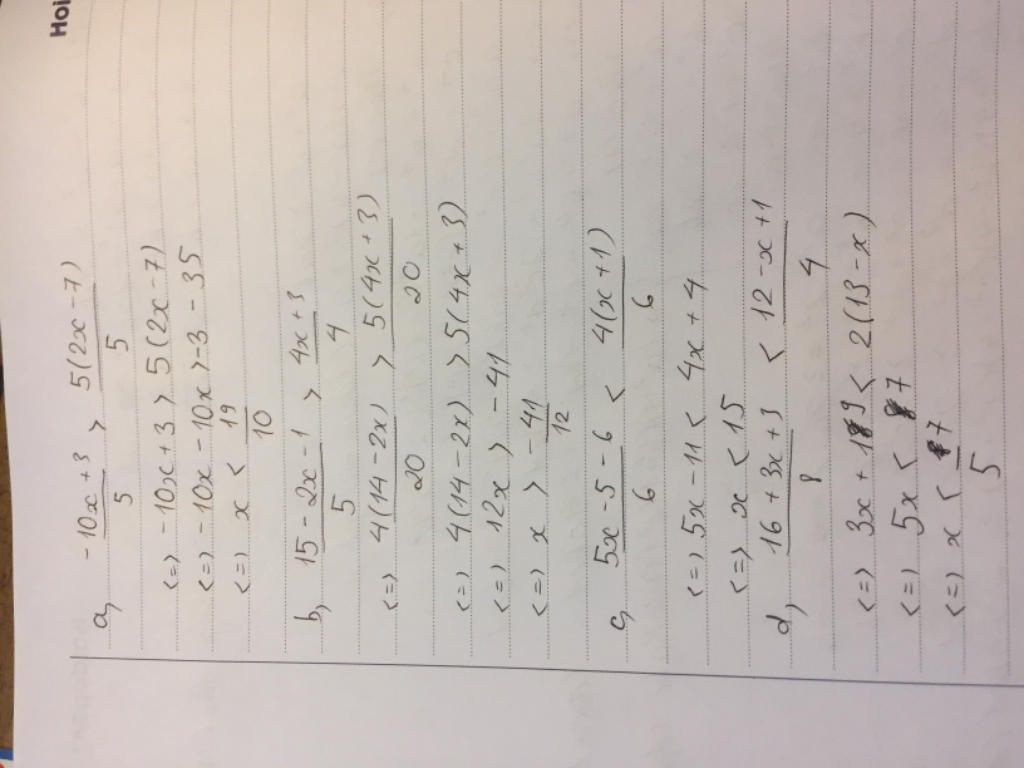 Hoi
a, (-10x + 3)/5 > 5(2x - 7)/5
<=> -10x + 3 > 5(2x - 7)
<=> -10x - 10x > -3 - 35
<=> x < 19/10
b, (15 - 2x - 1)/5 > (4x + 3)/4
<=> 4(14 - 2x)/20 > 5(4x + 3)/20
<=> 4(14 - 2x) > 5(4x + 3)
<=> 12x > -41
<=> x > -41/12
c, (5x - 5 - 6)/6 < 4(x + 1)/6
<=> 5x - 11 < 4x + 4
<=> x < 15
d, (16 + 3x + 3)/8 < (12 - x + 1)/4
<=> 3x + 19 < 2(13 - x)
<=> 5x < 7
<=> x < 7/5